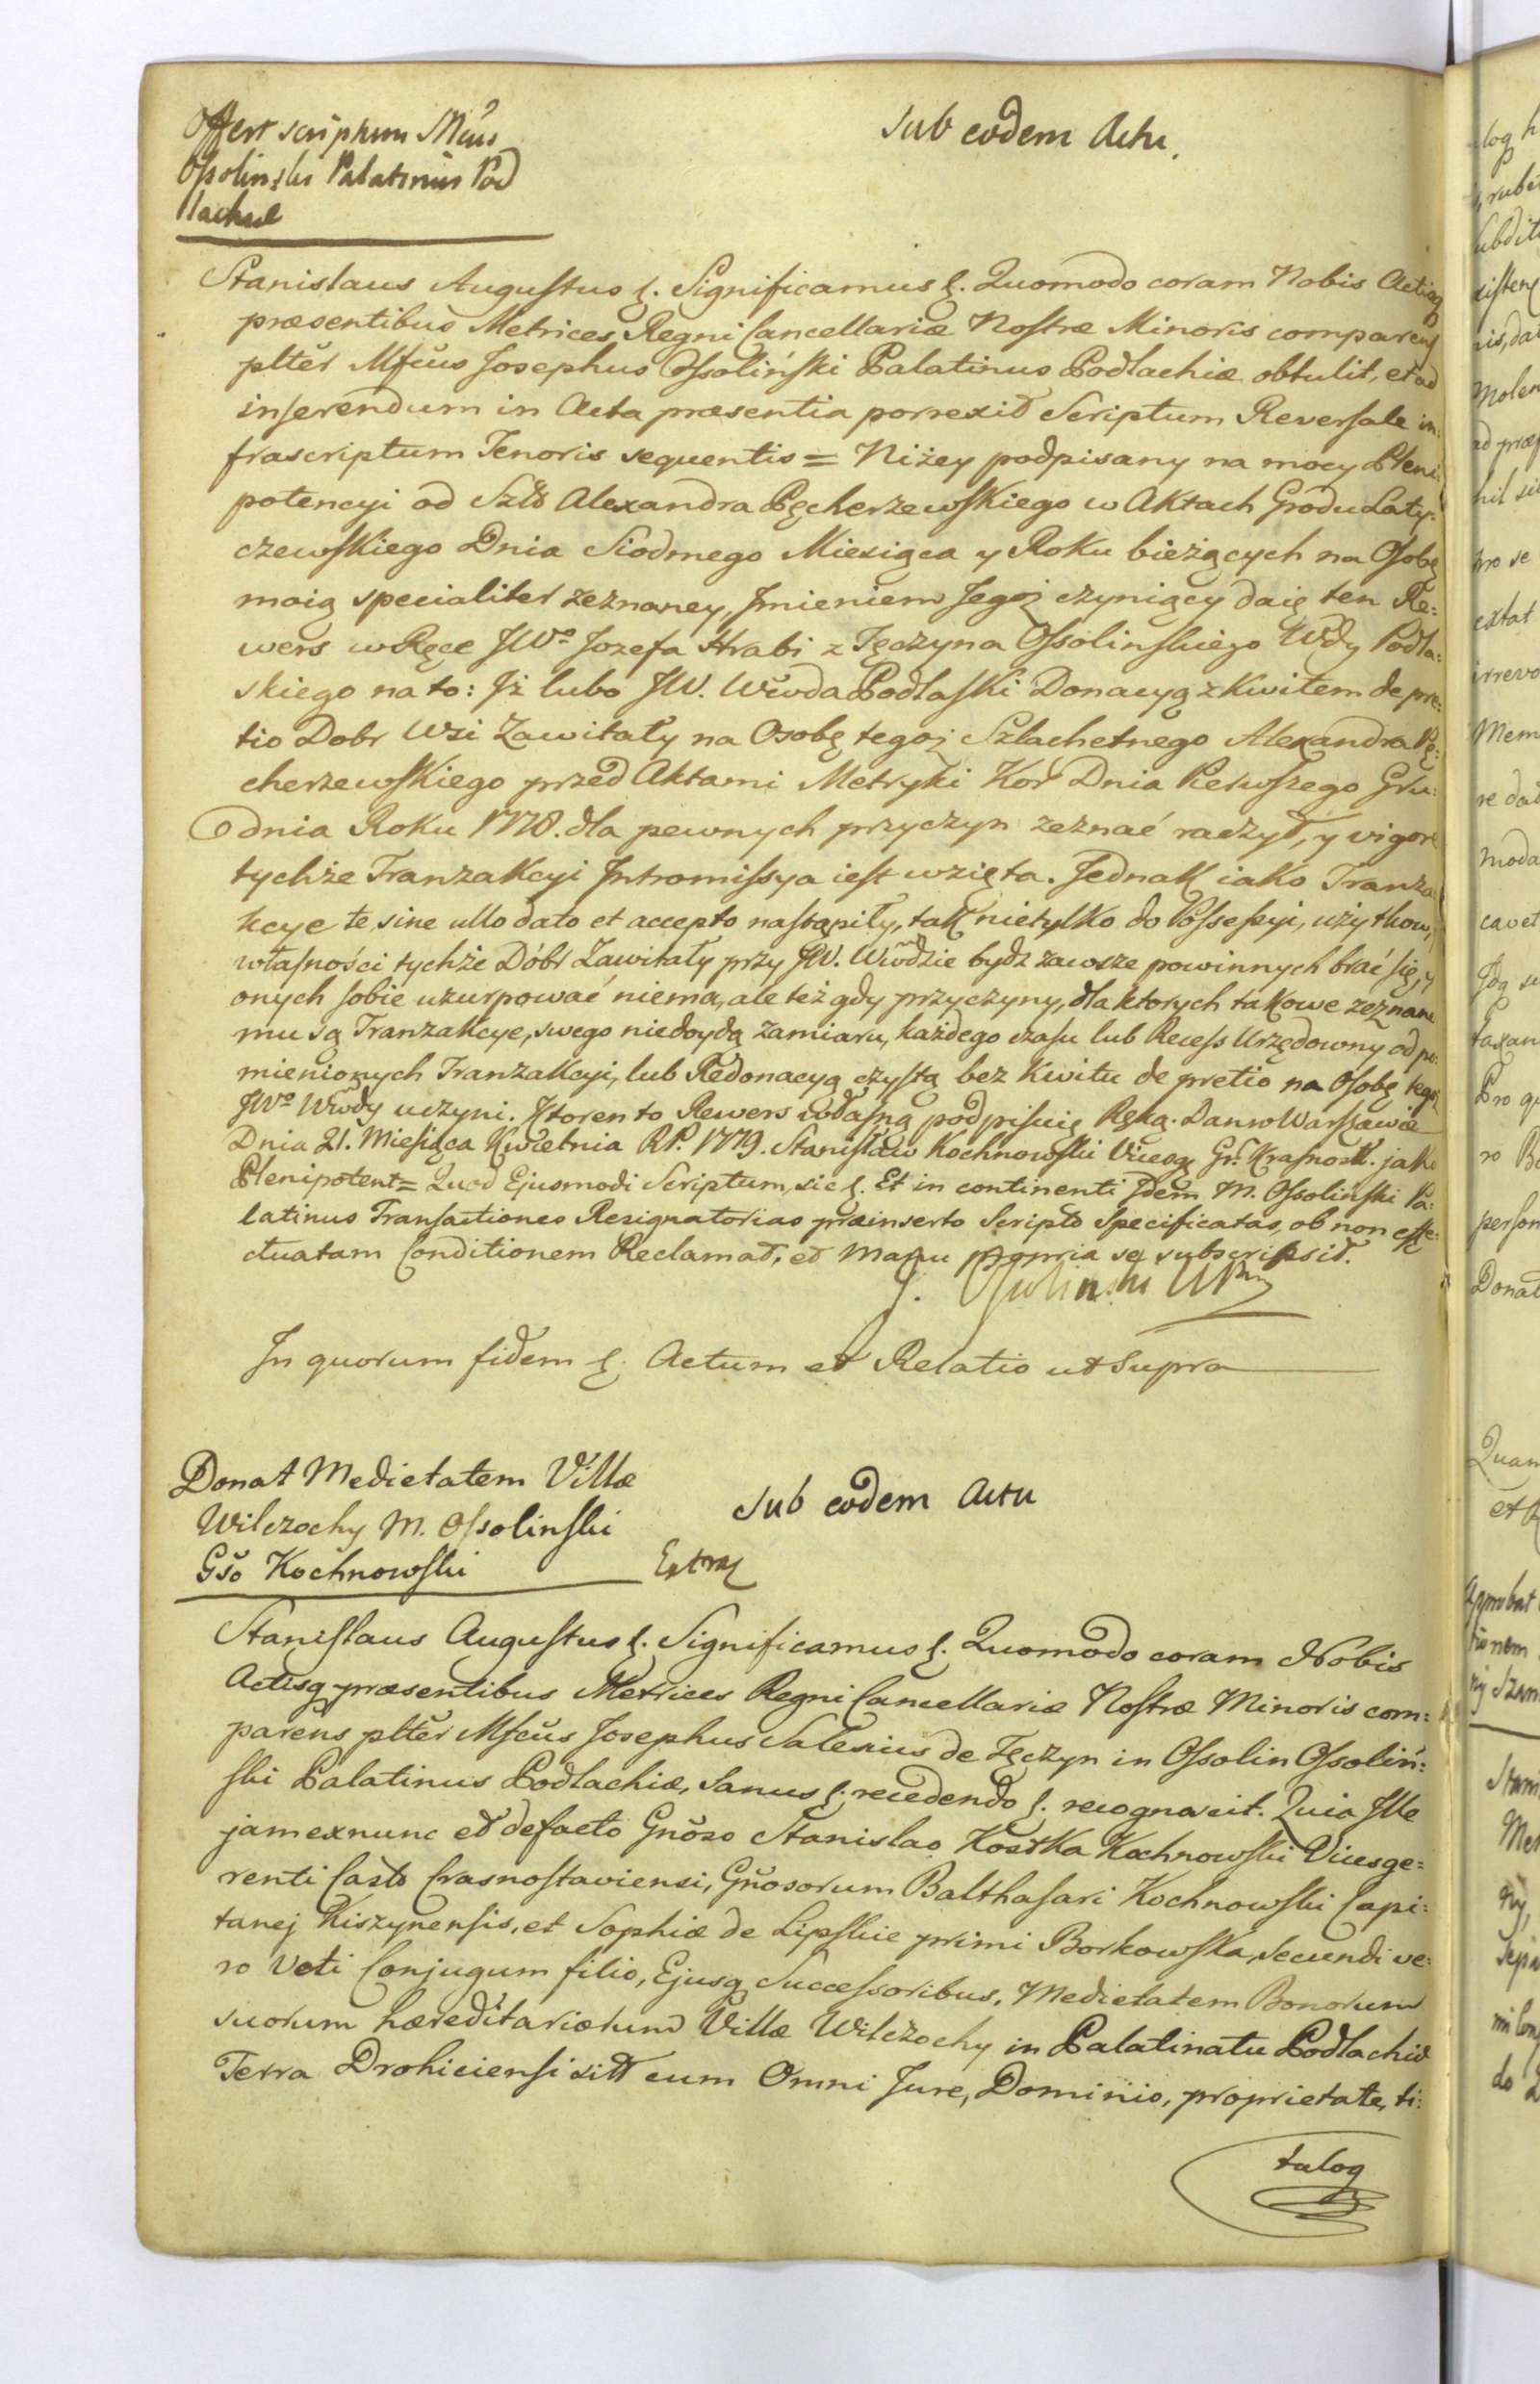 Offert scriptum Mcus
Ossolinski Palatinus Pod
lachiæ
Sub eodem Actu.
Stanislaus Augustus &. Significamus &. Quomodo coram Nobis Actisq
præsentibus Metrices Regni Cancellariæ Nostræ Minoris comparens
pltĕr Mfcus Josephus Ossoliński Palatinus Podlachiæ obtulit, et ad
inserendum in Acta præsentia porrexit Scriptum Reversale in:
frascriptum Tenoris sequentis = Niżey podpisany na mocy Pleni:
potencyi od Szłо Alexandra Pęcherzewskiego w Aktach Grodu Laty:
czewskiego Dnia Siodmego Miesiąca y Roku bieżących na Osobę
moią specialiter zeznaney, Jmieniem Jegoż czyniący daię ten Re:
wers w Ręce JWo Jozefa Hrabi z Tęczyna Ossolinskiego Wdy Podla:
skiego na to: Jż lubo JW. Wewoda Podlaski Donacyą z Kwitem de pre:
tio Dobr Wsi Zawitały na Osobę tegoż Szlachetnego Alexandra Pę:
cherzewskiego przed Aktami Metryki Kor Dnia Pierwszego Gru:
dnia Roku 1778. dla pewnych przyczyn zeznać raczył, y vigore
tychże Tranzakcyi Intromissya iest wzięta. Jednak iako Tranza
kcye te sine ullo dato et accepto nastąpiły, tak nietylko do Possessyi, użytkow,
własności tychże Dóbr Zawitały przy JW. Wwdzie bydz zawsze powinnych brać się, y
onych sobie uzurpować niema, ale też gdy przyczyny, dla ktorych takowe zeznane
mu są Tranzakcye, swego niedoydą zamiaru, każdego czasu lub Recess Urzędowny od po:
mienionych Tranzakcyi, lub Redonacyą czystą bez Kwitu de pretio na Osobę tegoż
JWo Wwdy uczyni. Ktoren to Rewers własną podpisuię Ręką. Dan w Warszawie
Dnia 21. Miesiąca Kwietnia RP. 1779. Stanisław Kochnowski Viceog Gr. Krasnost. jako
Plenipotent = Quod Ejusmodi Scriptum, sic &. Et in continenti Idem M. Ossoliński Pa:
latinus Transactiones Resignatorias præinserto Scripto Specificatas, ob non effe:
ctuatam Conditionem Reclamat, et Manu propria se subscripsit.
J. Ossolinski WP
In quorum fidem &. Actum et Relatio ut Supra
Donat Medietatem Villæ
Wilczochy M. Ossolinski
Gšo Kochnowski
Sub eodem Actu
Extra
Stanislaus Augustus &. Significamus &. Quomodo coram Nobis
Actisq præsentibus Metrices Regni Cancellariæ Nostræ Minoris com:
parens pltĕr Mfcŭs Josephus Salesius de Tęczyn in Ossolin Ossoliń:
ski Palatinus Podlachiæ, Sanus &. recedendo &. recognovit. Quia Ille
jam exnunc et defacto Gnŏso Stanislao Kostka Kochnowski Vicesge:
renti Casto Crasnostaviensi, Gnŏsorum Balthasari Kochnowski Capi:
tanej Kiszynensis, et Sophiæ de Lipskie primi Borkowska, secundi ve:
ro Voti Conjugum filio, Ejusq Successoribus, Medietatem Bonorum
suorum hæreditariorum Villæ Wilczochy in Palatinatu Podlachiæ
Terra Drohiciensi sitt cum Omni Jure, Dominio, proprietate, ti:
tuloq